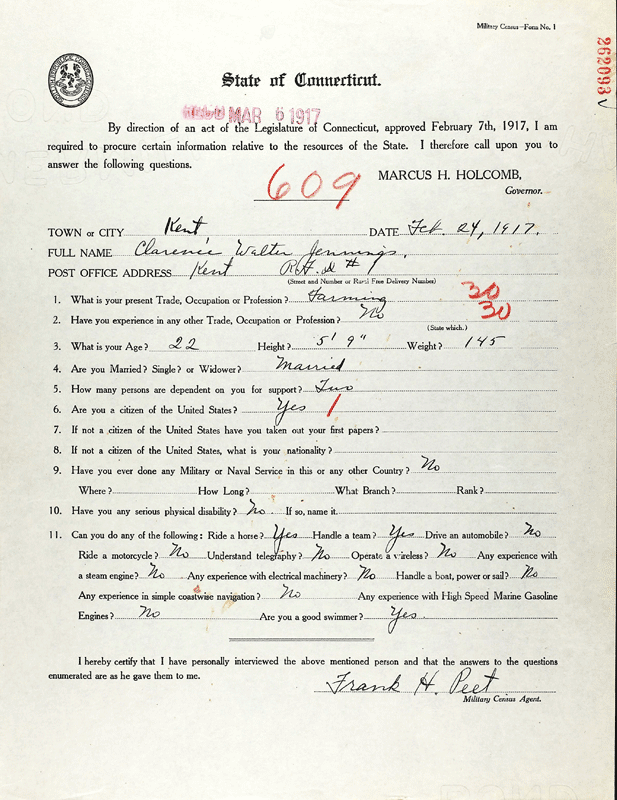 Military Census—Form No. 1
262093
State of Connecticut.
MAR 6 1917
By direction of an act of the Legislature of Connecticut, approved February 7th, 1917, I am
required to procure certain information relative to the resources of the State. I therefore call upon you to
answer the following questions.
609
MARCUS H. HOLCOMB,
Governor.
TOWN or CITY Kent DATE Feb. 24, 1917.
FULL NAME Clarence Walter Jennings.
POST OFFICE ADDRESS Kent R.F.D # 1
(Street and Number or Rural Free Delivery Number)
1. What is your present Trade, Occupation or Profession? Farming 30
2. Have you experience in any other Trade, Occupation or Profession? No 30
(State which.)
3. What is your Age? 22 Height? 5' 9" Weight? 145
4. Are you Married? Single? or Widower? Married
5. How many persons are dependent on you for support? Two
6. Are you a citizen of the United States? Yes /
7. If not a citizen of the United States have you taken out your first papers?
8. If not a citizen of the United States, what is your nationality?
9. Have you ever done any Military or Naval Service in this or any other Country? No
Where? How Long? What Branch? Rank?
10. Have you any serious physical disability? No. If so, name it.
11. Can you do any of the following: Ride a horse? Yes Handle a team? Yes Drive an automobile? No
Ride a motorcycle? No Understand telegraphy? No Operate a wireless? No Any experience with
a steam engine? No Any experience with electrical machinery? No Handle a boat, power or sail? No
Any experience in simple coastwise navigation? No Any experience with High Speed Marine Gasoline
Engines? No Are you a good swimmer? Yes.
I hereby certify that I have personally interviewed the above mentioned person and that the answers to the questions
enumerated are as he gave them to me.
Frank H. Peet
Military Census Agent.